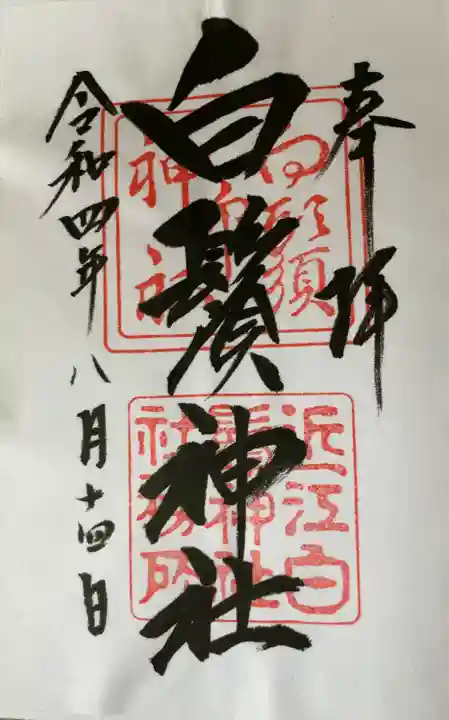 奉拝
白鬚神社
令和四年八月十四日
近江白
鬚神社
社務所